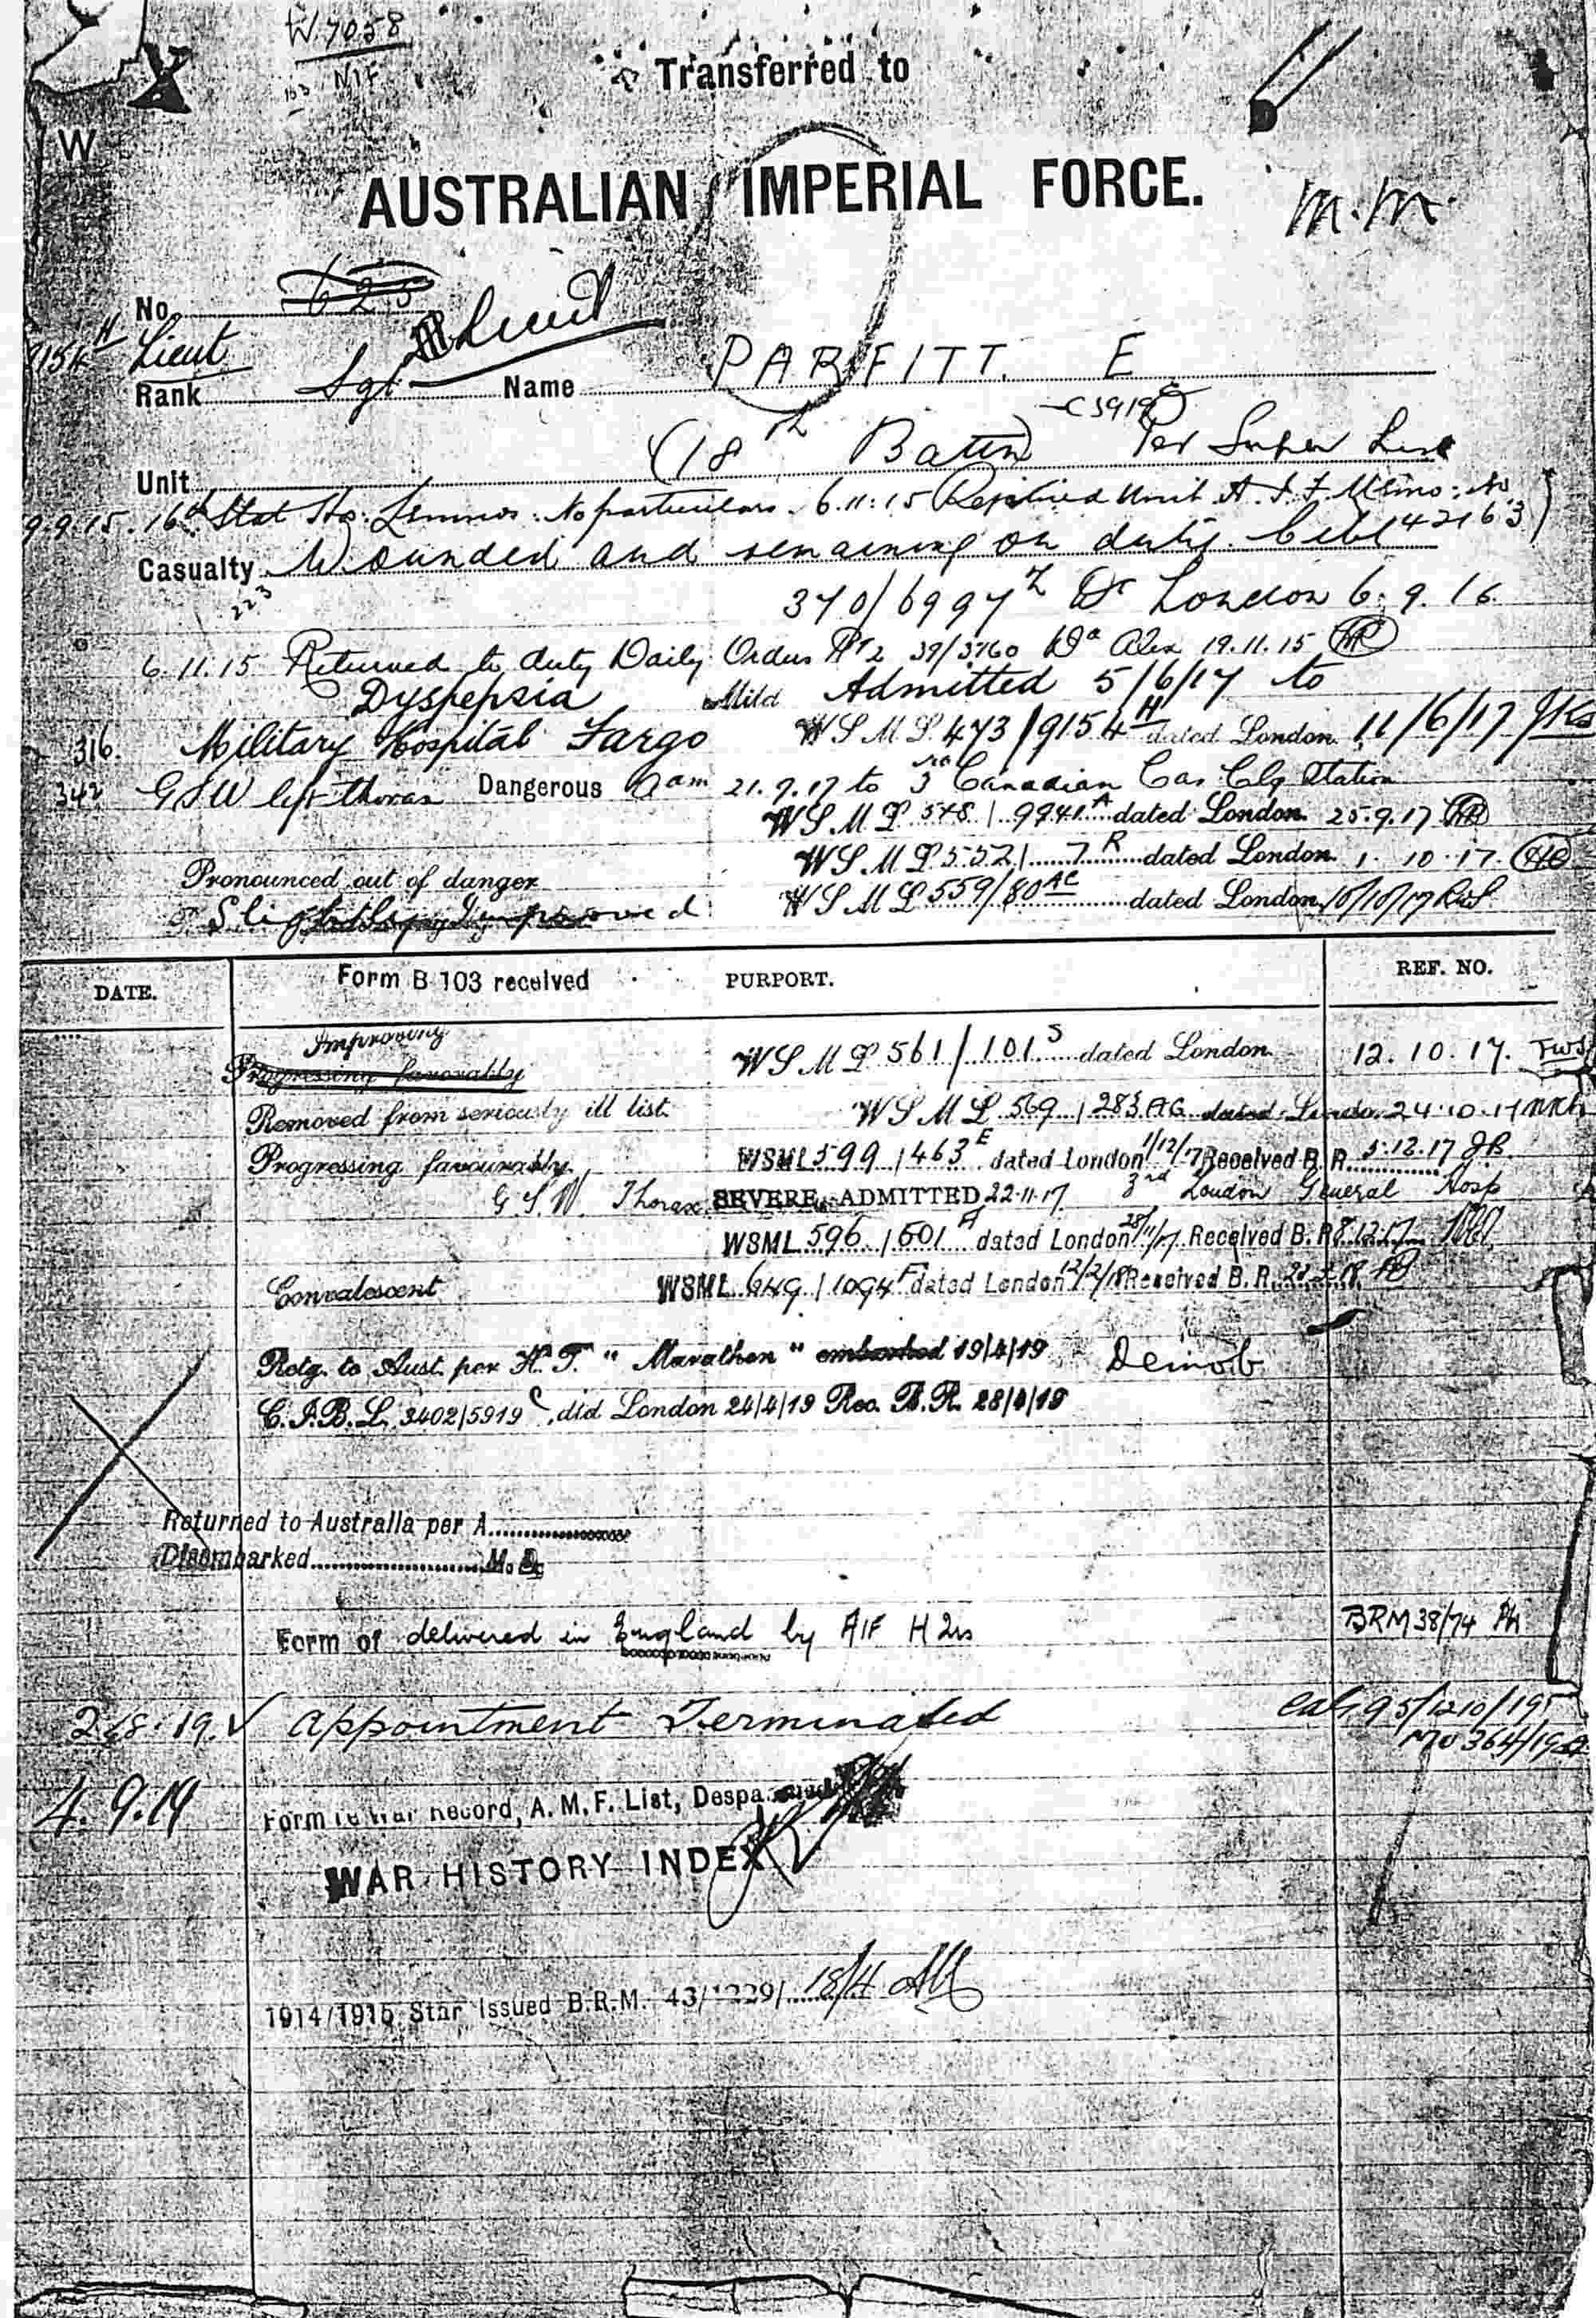 W.7058
NIF
Transferred to
W
AUSTRALIAN IMPERIAL FORCE.
M.M.
No. 625
Lieut
Lieut
Rank Sgt Name PARFITT. E
C5919
Unit (18th Battn) Per Super List
9.9.15. 16th Stat Hos: Lemnos. No particulars. 6.11.15 Rejoined Unit A.I.F. Memo: No
42163)
Casualty Wounded and remaining on duty. Cebl
223
370/6997 Z Dd London 6.9.16
6.11.15 Returned to duty Daily Orders Pt 2 39/3760 Dd Alex 19.11.15
Dyspepsia Mild Admitted 5/6/17 to
316. Military Hospital Fargo WSML 473/9154 H dated London 11/6/17
342 GSW left thorax Dangerous Adm 21.9.17 to 3rd Canadian Cas Clg Station
WSML 548/9941 A dated London 25.9.17
Pronounced out of danger WSML 552/7 R dated London 1.10.17.
Slightly Improved WSML 559/80 AC dated London 10/10/17
DATE. Form B 103 received PURPORT. REF. NO.
Improving
Progressing favorably WSML 561/101 S dated London 12.10.17.
Removed from seriously ill list. WSML 569/283 AG dated London 24.10.17
Progressing favourably. WSML 599/463 E dated London 1/12/17 Received B.R. 5.12.17
G.S.W. Thorax SEVERE ADMITTED 22.11.17 3rd London General Hosp
WSML 596/601 A dated London 28/11/17 Received B.R. 8.12.17
Convalescent WSML 649/1094 F dated London 12/2/18 Received B.R.
Retg. to Aust. per H.T. "Marathon" embarked 19/4/19 Demob
C.I.B.L. 3402/5919 C, dtd London 24/4/19 Rec. B.R. 28/4/19
Returned to Australia per A
Disembarked M.D.
Form of delivered in England by AIF H Qrs BRM 38/74
28.8.19. Appointment Terminated
MO 364/19
4.9.19 Form re War Record, A.M.F. List,
WAR HISTORY INDEX
1914/1915 Star Issued B.R.M. 43/1229/ 18/4